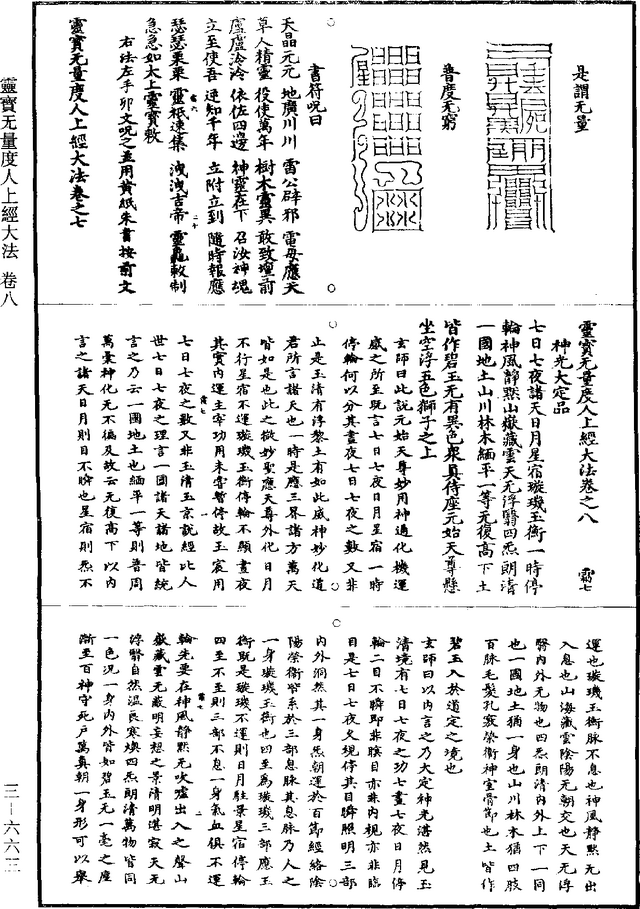 是謂无量
普度无窮
書符呪曰
天晶元元 地廣川川 雷公辟邪 電母應天
草人精靈 役使萬年 樹木靈異 敢致壇前
盧盧泠泠 依佐四邊 神靈在下 召汝神魂
立至使吾 逆知千年 立附立到 隨時報應
瑟瑟栗栗 靈祇速集 洩洩吉帝 靈龜敕制
急急如太上靈寶敕
右法左手卯文呪之並用黄紙朱書按前文
靈寶无量度人上經大法卷之七
靈寶无量度人上經大法卷之八
神光大定品
七日七夜諸天日月星宿璇璣玉衡一時停
輪神風靜默山嶽藏雲天无浮翳四炁朗清
一國地土山川林木緬平一等无復高下土
皆作碧玉无有異色衆真侍座元始天尊懸
坐空浮五色獅子之上
玄師曰此説元始天尊妙用神通化機運
威之所至既言七日七夜日月星宿一時
停輪何以分其晝夜七日七夜之數又非
止是玉清有浮黎土有如此威神妙化道
君所言諸天也一時是應三界諸方萬天
皆如是也此之微妙聖應天尊外化日月
不行星宿不運璇璣玉衡停輪不顯晝夜
其實内運主宰功用未嘗暫停故玉宸用
七日七夜之數又非玉清玉京説經此人
世七日七夜之理言一國諸天諸地皆統
言之乃云一國地土也緬平一等則普周
萬彙神化无不徧及故云无復高下以内
言之諸天日月則目不瞬也星宿則炁不
運也璇璣玉衡脉不息也神風靜默无出
入息也山海藏雲陰陽无朝交也天无浮
翳内外无物也四炁朗清内外上下一同
也一國地土猶一身也山川林木猶四肢
百脉毛髮孔竅榮衛神室骨節也土皆作
碧玉入於道定之境也
玄師曰以内言之乃大定神光湛然見玉
清境有七日七夜之功七晝七夜日月停
輪二目不瞬即非瞑目亦非内視亦非臨
目是七日七夜又規停其目瞬照明三部
内外洞然其一身炁朝運於百節經絡陰
陽榮衛皆系於三部息脉其息脉乃人之
一身璇璣玉衡也四至爲璇璣三部應玉
衡既是璇璣不運則日月駐景星宿停輪
四至不至則三部不息一身氣血俱不運
輪先要在神風靜默无吹嘘出入之聲山
嶽藏雲无蔽明妄想之景清明湛寂天无
浮翳自然温良寒煥四炁朗清萬物皆同
一色况一身内外皆如碧玉无一毫之塵
漸至百神守死户萬真朝一身形可以舉
靈寶无量度人上經大法 卷八
三—六六三